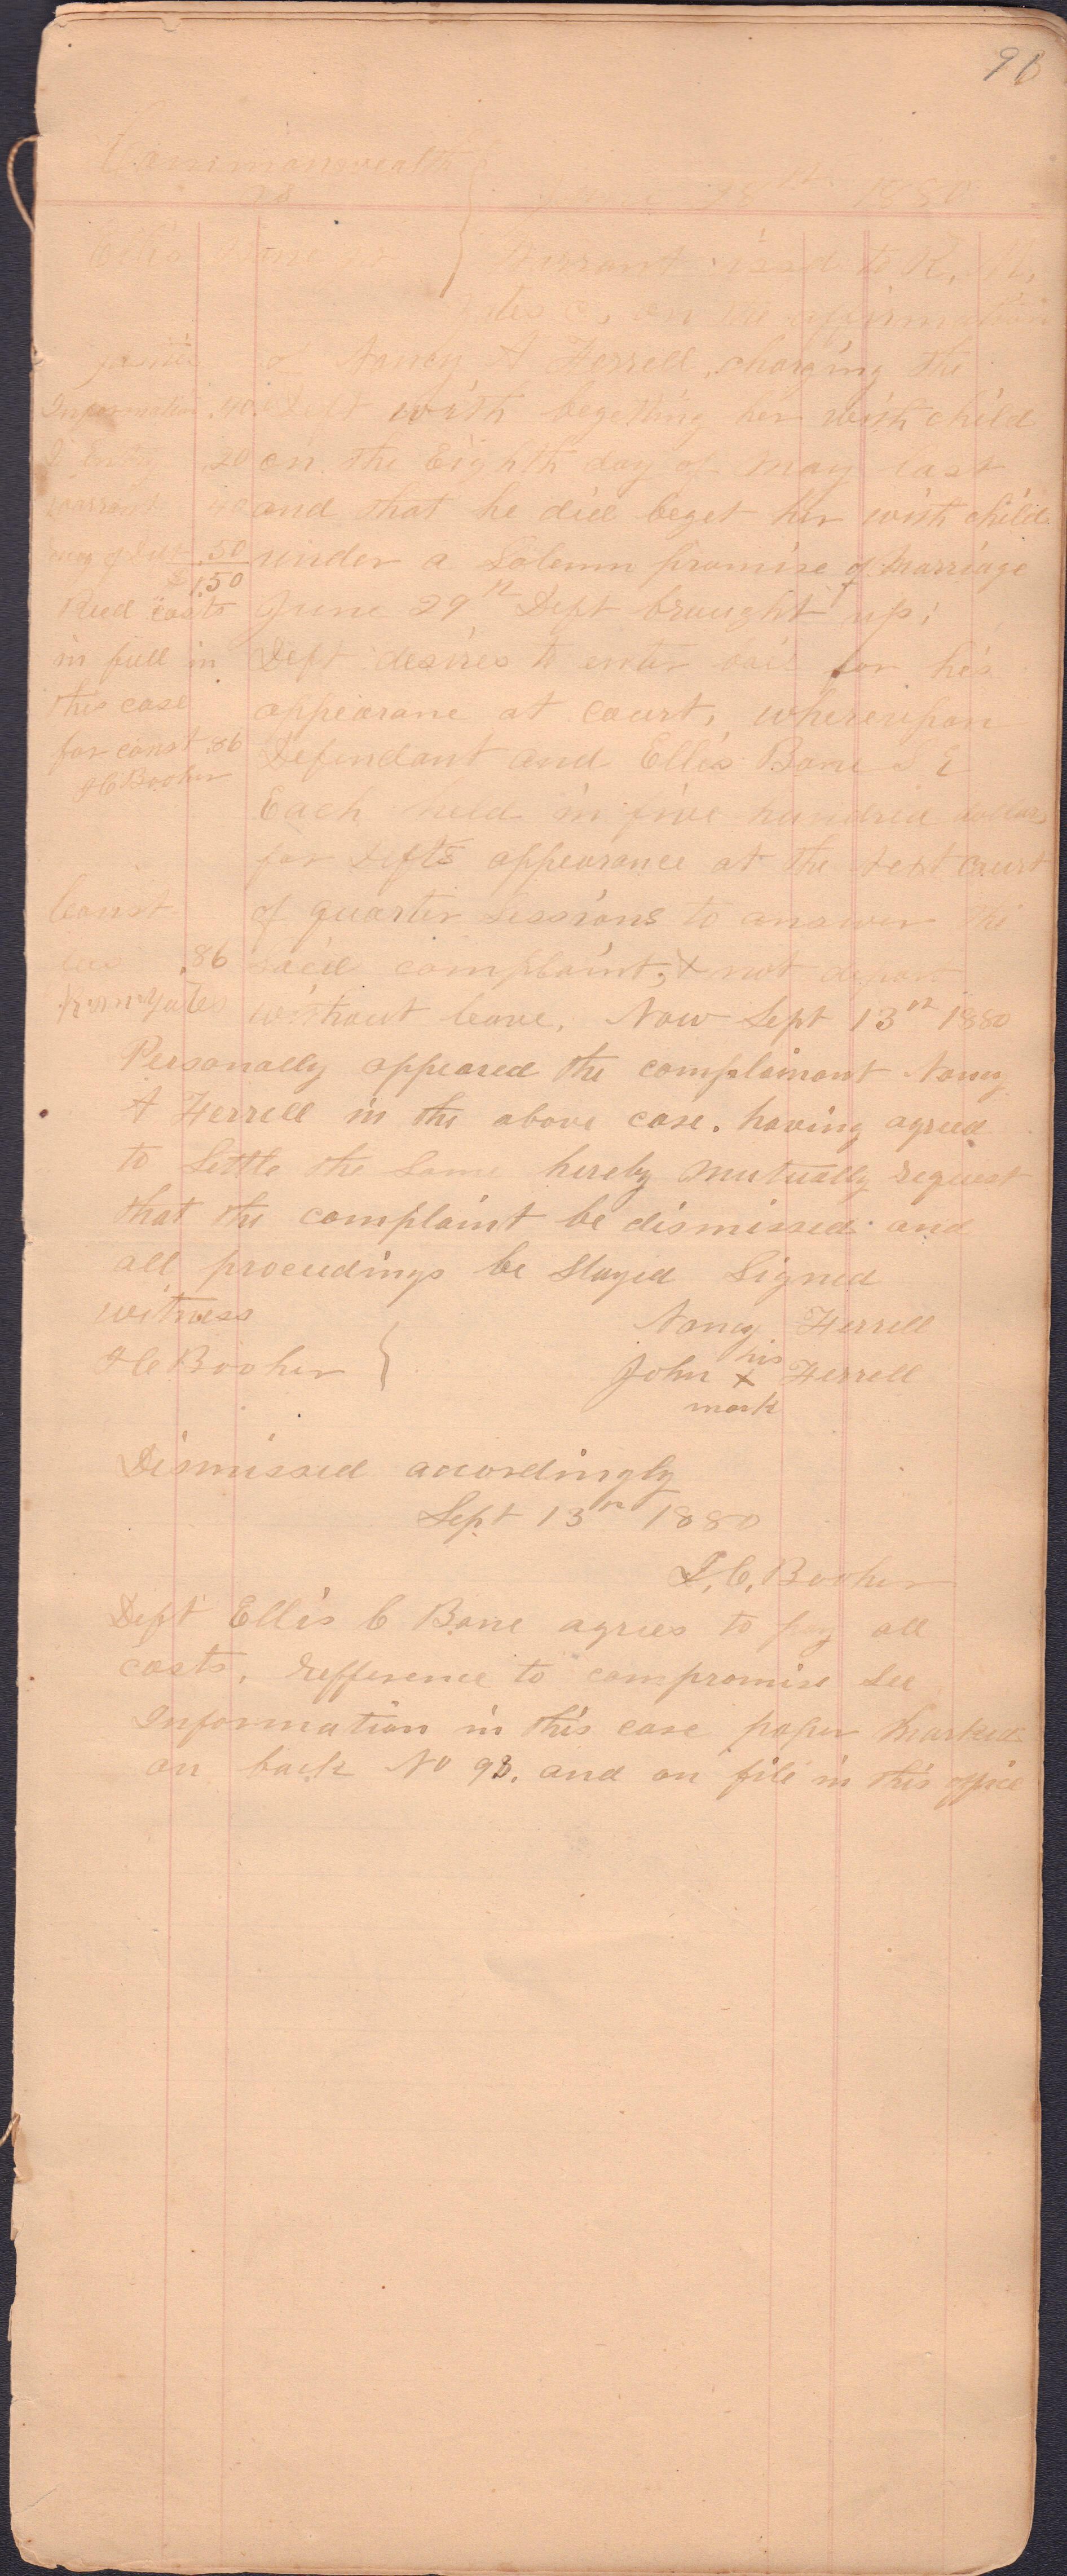 98
Commonwealth
vs } June 28th 1880
Ellis Bane jr } Warrant issd to R. M.
Yates C, on the affirmation
Justice of Nancy A Ferrell, charging the
Information .40 Deft with begetting her with child
D Entry .20 on the Eighth day of May last
Warrant 40 and that he did beget her with child
.50 under a Solemn promise of Marriage
$1.50
Recd costs June 29th Deft brought up;
in full in Deft desires to enter bail for his
this case appearane at court, whereupon
for const .86 Defendant and Ellis Bane
I C Booher
Each held in five hundred dollars
for Defts appearance at the next Court
Const of quarter Sessions to answer the
.86 said complaint, & not depart
R M Yates without leave. Now Sept 13th 1880
Personally appeared the complainant Nancy
A Ferrell in the above case. having agreed
to Settle the Same hereby mutually request
that the complaint be dismissed and
all proceedings be Stayed Signed
witness Nancy Ferrell
I C Booher } John his x mark Ferrell
Dismissed accordingly
Sept 13th 1880
I. C. Booher
Deft Ellis C Bane agrees to pay all
costs, Refference to compromise See
Information in this case paper Marked
on back No 98. and on file in this office